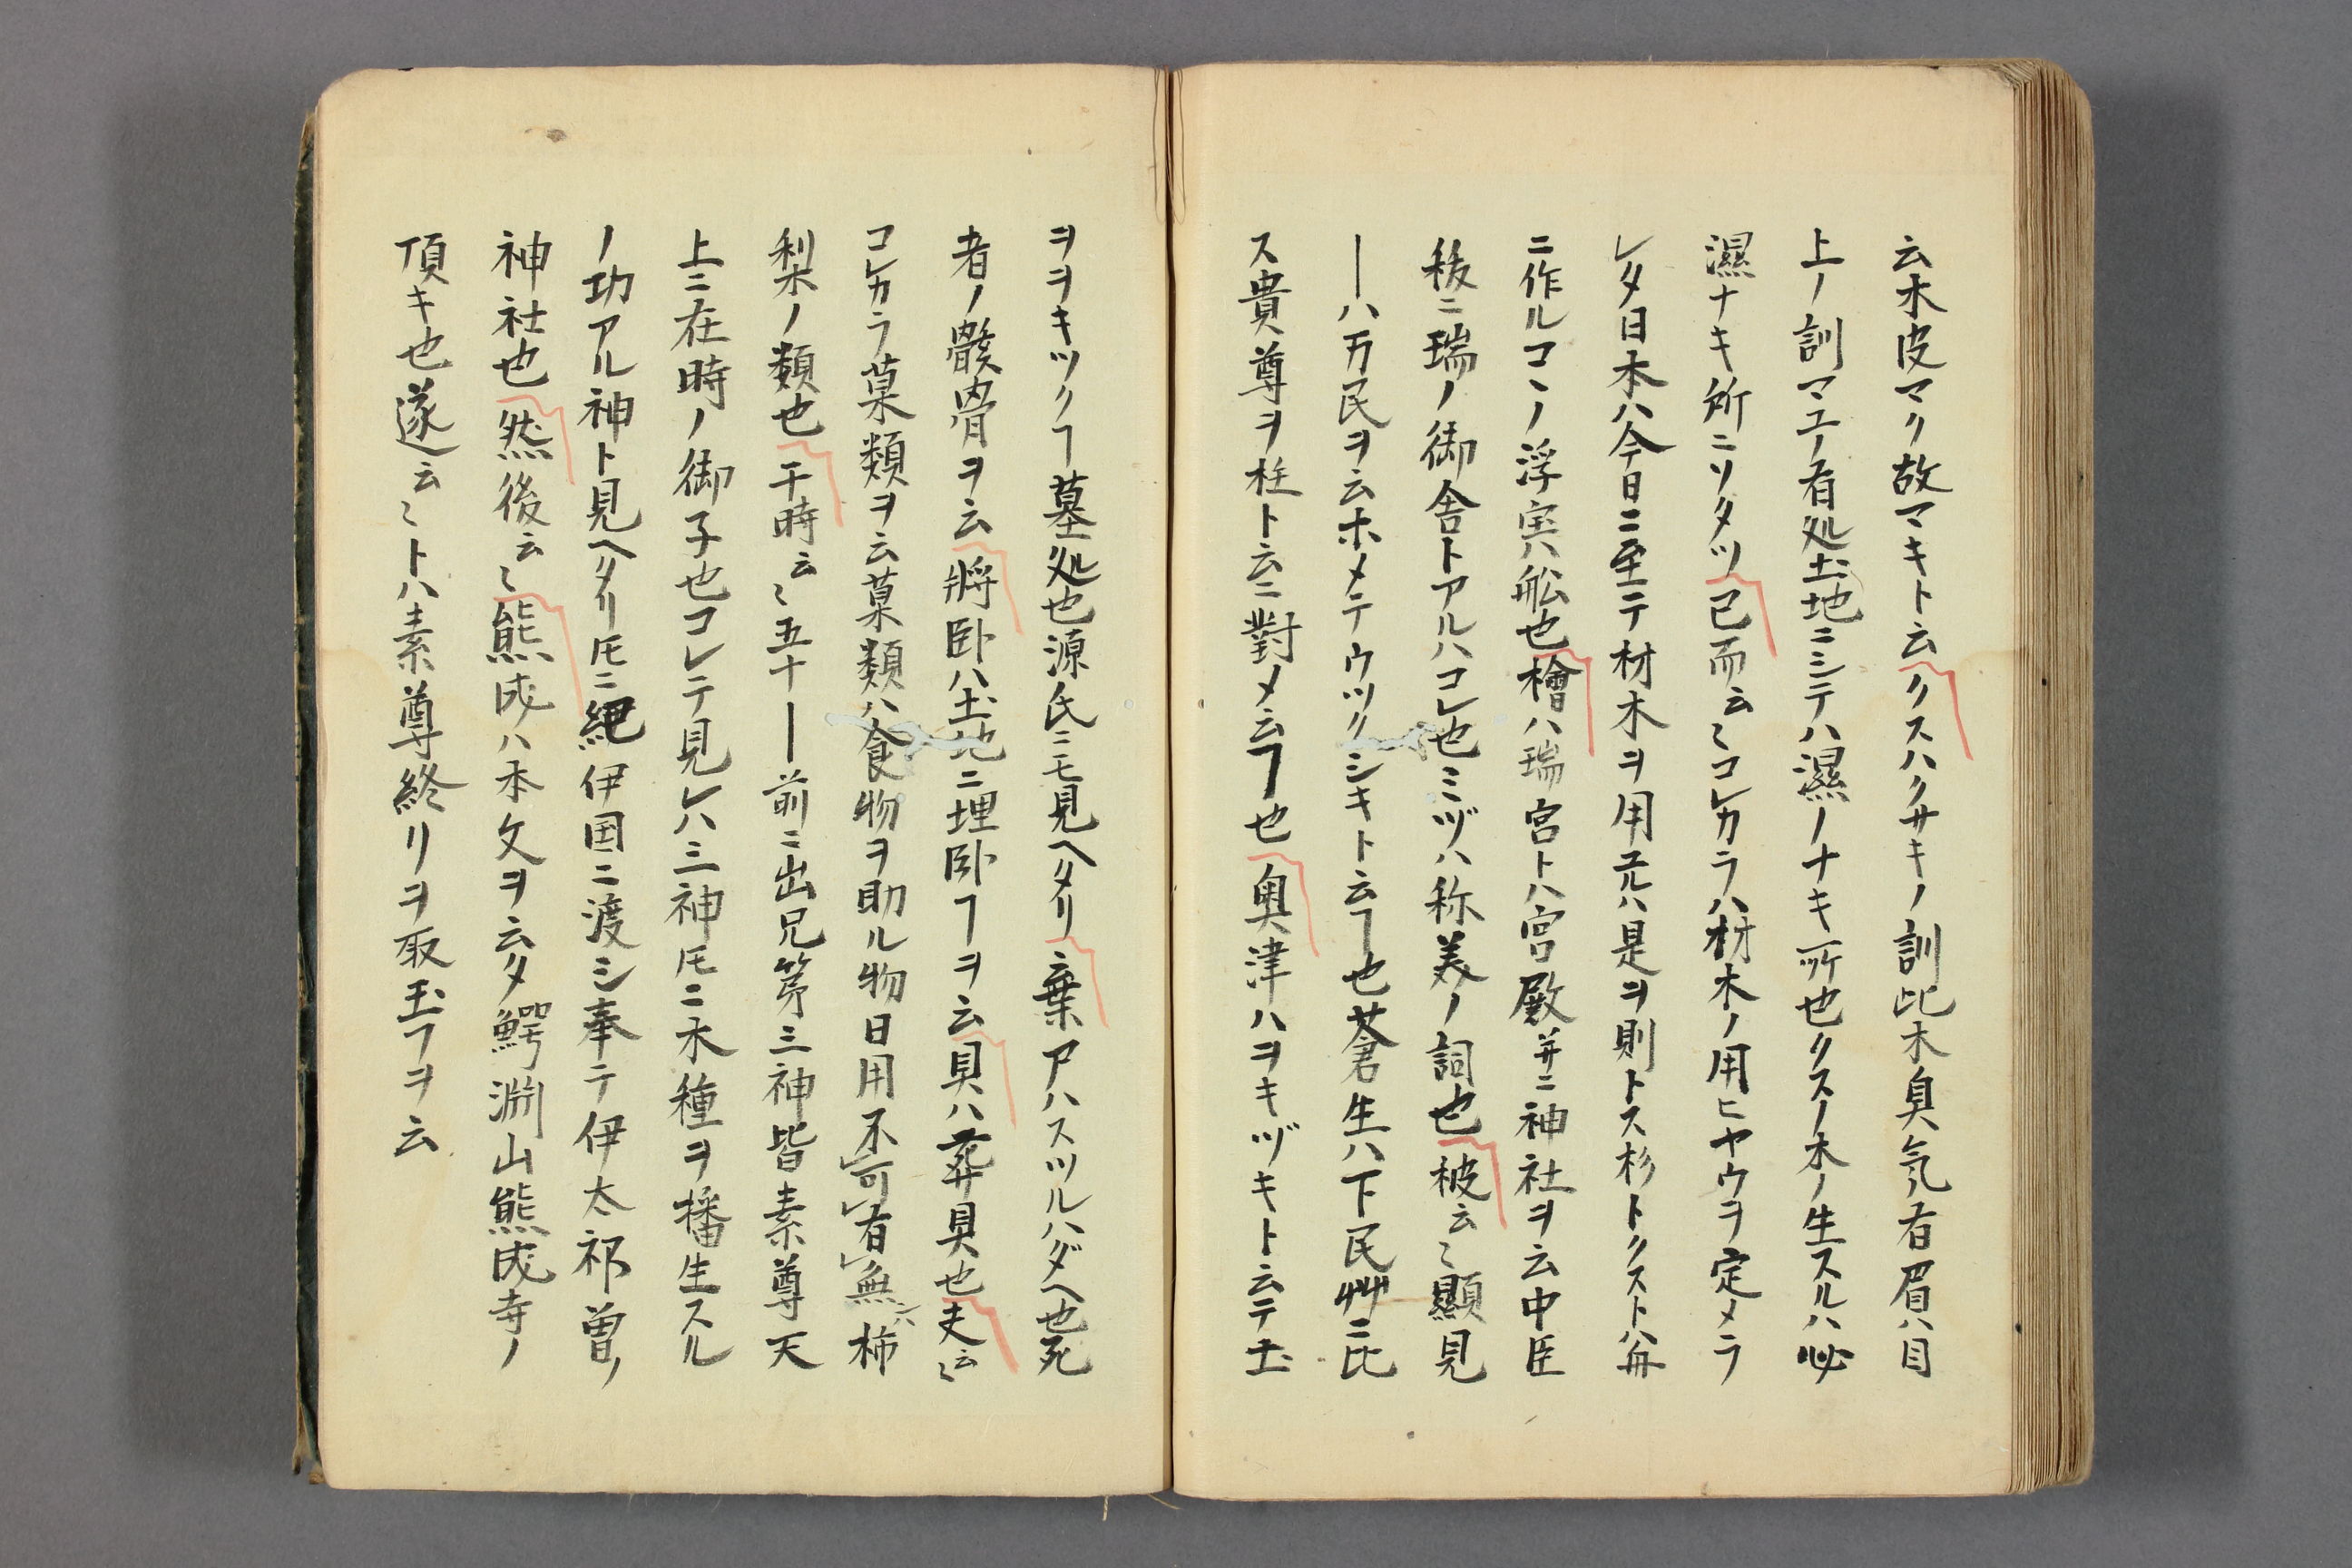 云木皮マク故マキト云クスハクサキノ訓此木臭気ノ有眉ハ目
上ノ訓マユノ有処土地ニシテハ濕ノナキ所也クスノ木ノ生スルハ必
濕ナキ所ニソタツ已而云〻コレカラハ材木ノ用ヒヤウヲ定メラ
レタ日本ハ今日ニ至テ材木ヲ用ユルハ是ヲ則トス杉トクストハ舟
ニ作ルコヽノ浮宝ハ舩也檜ハ瑞宮トハ宮殿并ニ神社ヲ云中臣
秡ニ瑞ノ御舎トアルハコレ也ミヅハ称美ノ詞也柀云〻顯見
―ハ万民ヲ云ホメテウツクシキト云ヿ也蒼生ハ下民艸ニ比
ス貴尊ヲ柱ト云ニ對メ云ヿ也奥津ハヲキヅキト云テ土
ヲヲキツクヿ墓処也源氏ニモ見ヘタリ棄戸ハスツルハダヘ也死
者ノ骸骨ヲ云將卧ハ土地ニ埋卧ヿヲ云具ハ葬具也夫云〻
コレカラ菓類ヲ云菓類ハ食物ヲ助ル物日用不可有無云〻柿
梨ノ類也于時云〻五十―前ニ出兄弟三神皆素尊天
上ニ在時ノ御子也コレテ見レハ三神氐ニ木種ヲ播生スル
ノ功アル神ト見ヘタリ氐ニ紀伊国ニ渡シ奉テ伊太祁曽ノ
神社也然後云〻熊成ハ本文ヲ云タ鰐渕山熊成寺ノ
頂キ也遂云〻トハ素尊終リヲ取玉フヲ云